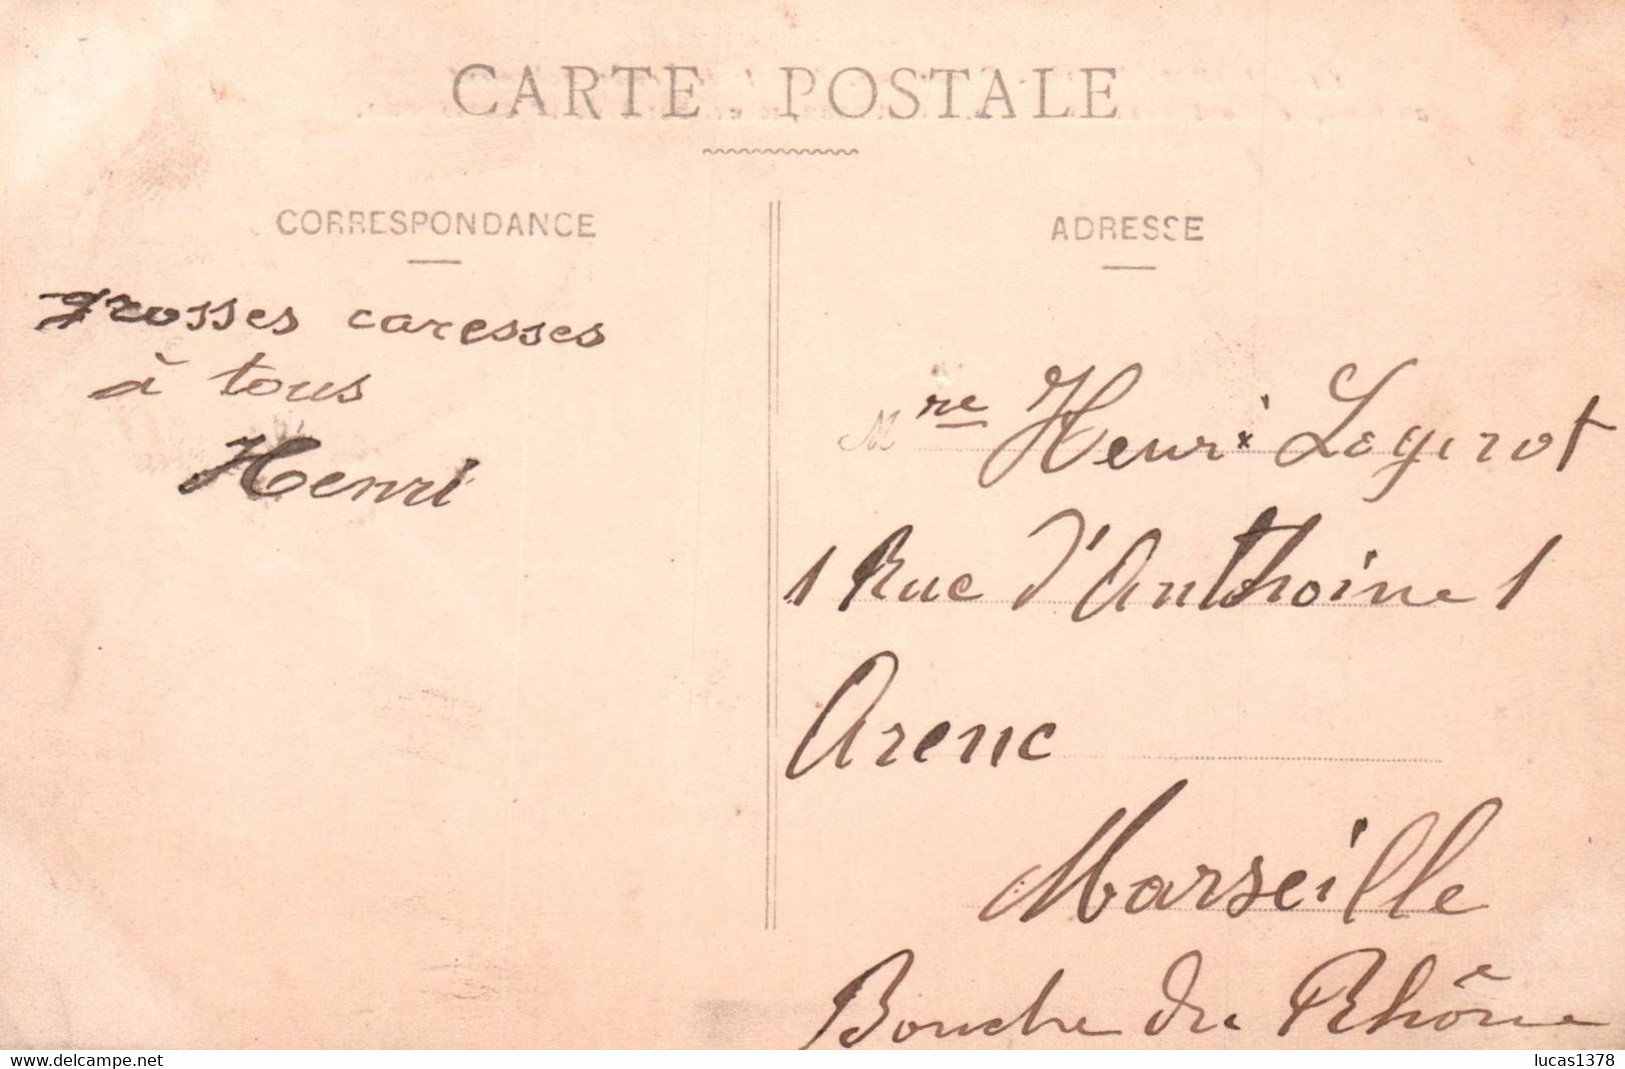 CARTE POSTALE
CORRESPONDANCE
grosses caresses
à tous
Henri
ADRESSE
Mre Henri Logerot
1 Rue d'Anthoine 1
Arenc
Marseille
Bouche du Rhône
www.delcampe.net
lucas1378